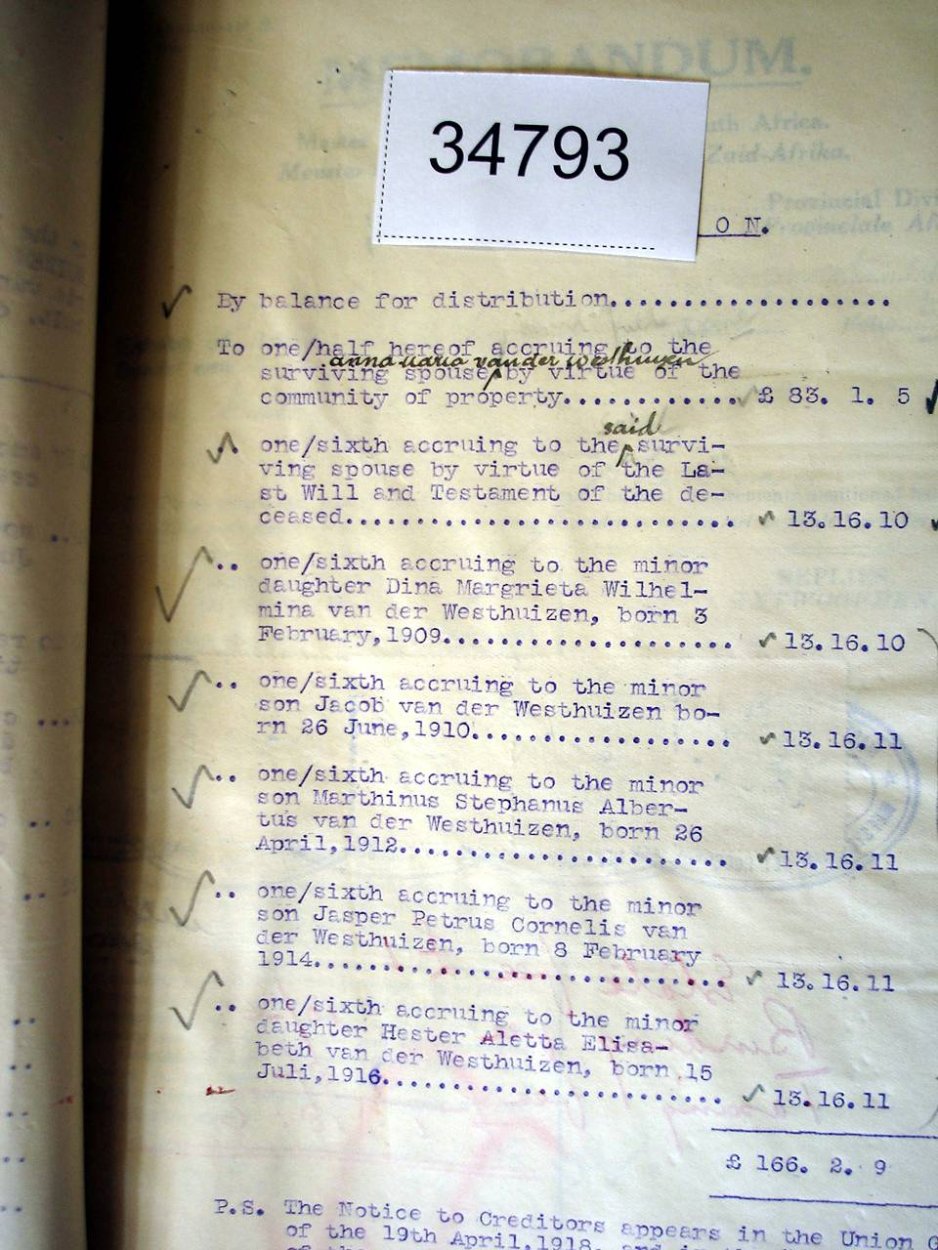 MEMORANDUM.
34793
uth Africa.
Zuid-Afrika.
Provincial Divi
Provinciale Af
O N.
By balance for distribution...................
To one/half hereof accruing to the
anna maria van der westhuizen
surviving spouse by virtue of the
community of property............ £ 83. 1. 5
said
one/sixth accruing to the survi-
ving spouse by virtue of the La-
st Will and Testament of the de-
ceased........................... 13.16.10
.. one/sixth accruing to the minor
daughter Dina Margrieta Wilhel-
mina van der Westhuizen, born 3
February,1909.................... 13.16.10
.. one/sixth accruing to the minor
son Jacob van der Westhuizen bo-
rn 26 June,1910.................. 13.16.11
.. one/sixth accruing to the minor
son Marthinus Stephanus Alber-
tus van der Westhuizen, born 26
April,1912....................... 13.16.11
.. one/sixth accruing to the minor
son Jasper Petrus Cornelis van
der Westhuizen, born 8 February
1914............................. 13.16.11
.. one/sixth accruing to the minor
daughter Hester Aletta Elisa-
beth van der Westhuizen, born 15
Juli,1916........................ 13.16.11
£ 166. 2. 9
P.S. The Notice to Creditors appears in the Union G
of the 19th April,1918, and in t